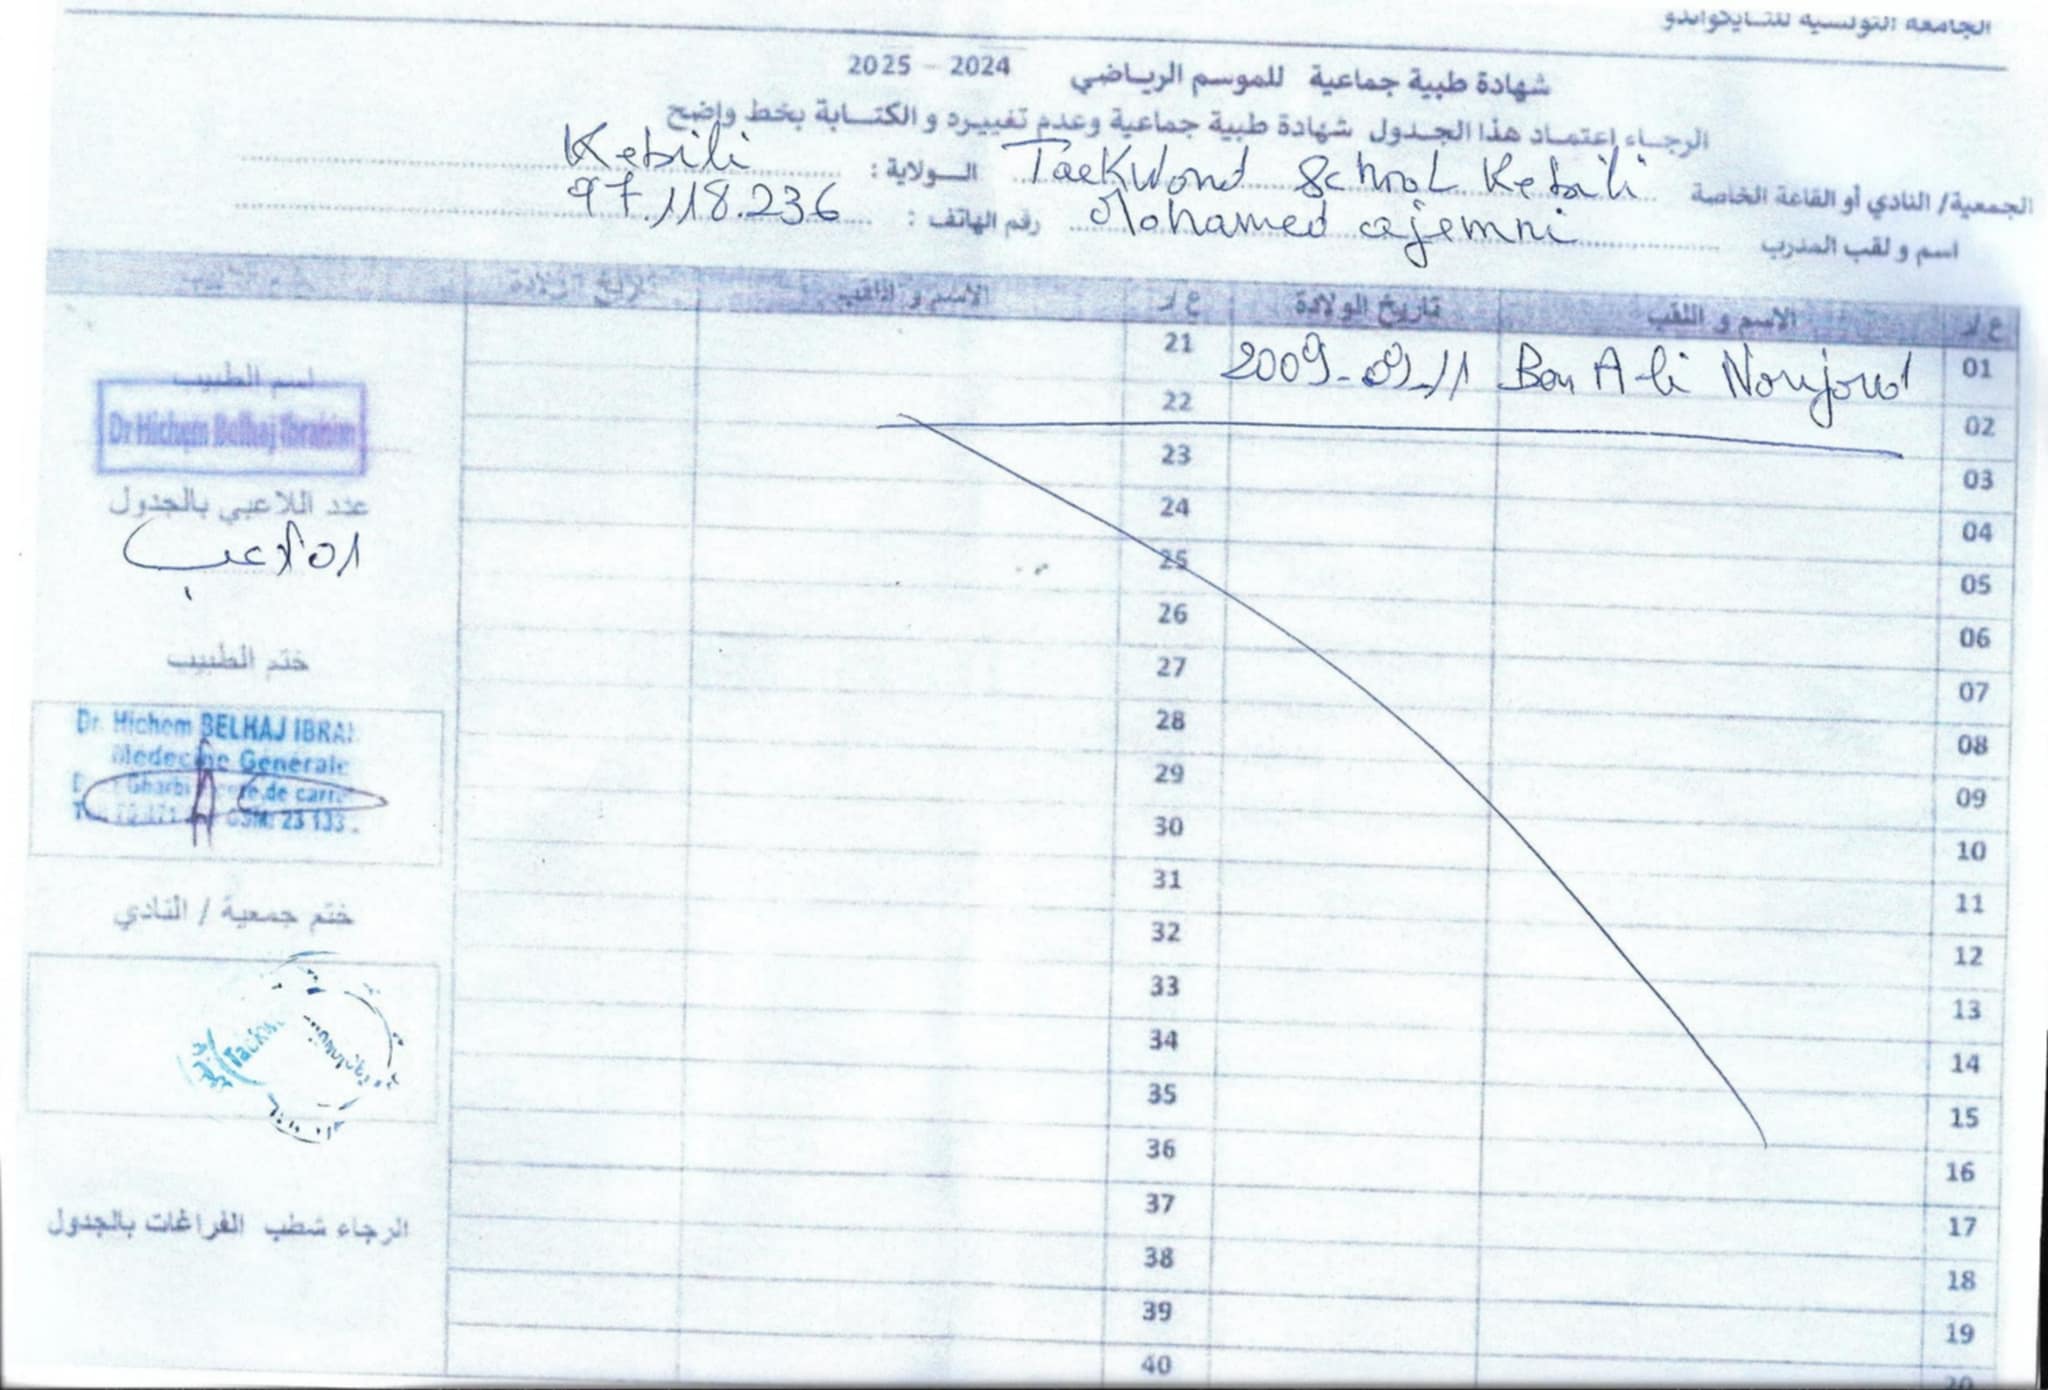 الجامعة التونسية للتايكواندو
شهادة طبية جماعية للموسم الرياضي 2024 - 2025
الرجاء إعتماد هذا الجدول شهادة طبية جماعية وعدم تغييره و الكتابة بخط واضح
الجمعية/ النادي أو القاعة الخاصة Taekwond School Kebili الولاية : Kebili
اسم و لقب المدرب Mohamed رقم الهاتف : 97.118.236
ع/ر الاسم و اللقب تاريخ الولادة ع/ر الاسم و اللقب تاريخ الولادة
01 Ben Ali 2009-09-11 21
02 22
03 23
04 24
05 25
06 26
07 27
08 28
09 29
10 30
11 31
12 32
13 33
14 34
15 35
16 36
17 37
18 38
19 39
20 40
اسم الطبيب
Dr Hichem Belhaj Ibrahim
عدد اللاعبي بالجدول
01 لاعب
ختم الطبيب
Dr. Hichem BELHAJ IBRA
Medecine Generale
Gharbi de
GSM: 23 133
ختم جمعية / النادي
الرجاء شطب الفراغات بالجدول